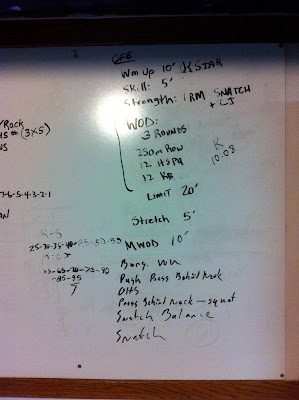 CFE
Wm Up 10' KSTAR
Skill: 5'
Strength: 1RM SNATCH
+ CJ
/Rack
(3x5)
NS
WOD:
3 ROUNDS
250m Row
12 HSPU
12 KB
K
10:08
7-6-5-4-3-2-1
LIMIT 20'
AN
Stretch 5'
K-S
25-30-35-40-45-50-55
MWOD 10'
Burg. Wu
Push Press Behind Neck
OHS
Press Behind Neck - squat
Snatch Balance
Snatch